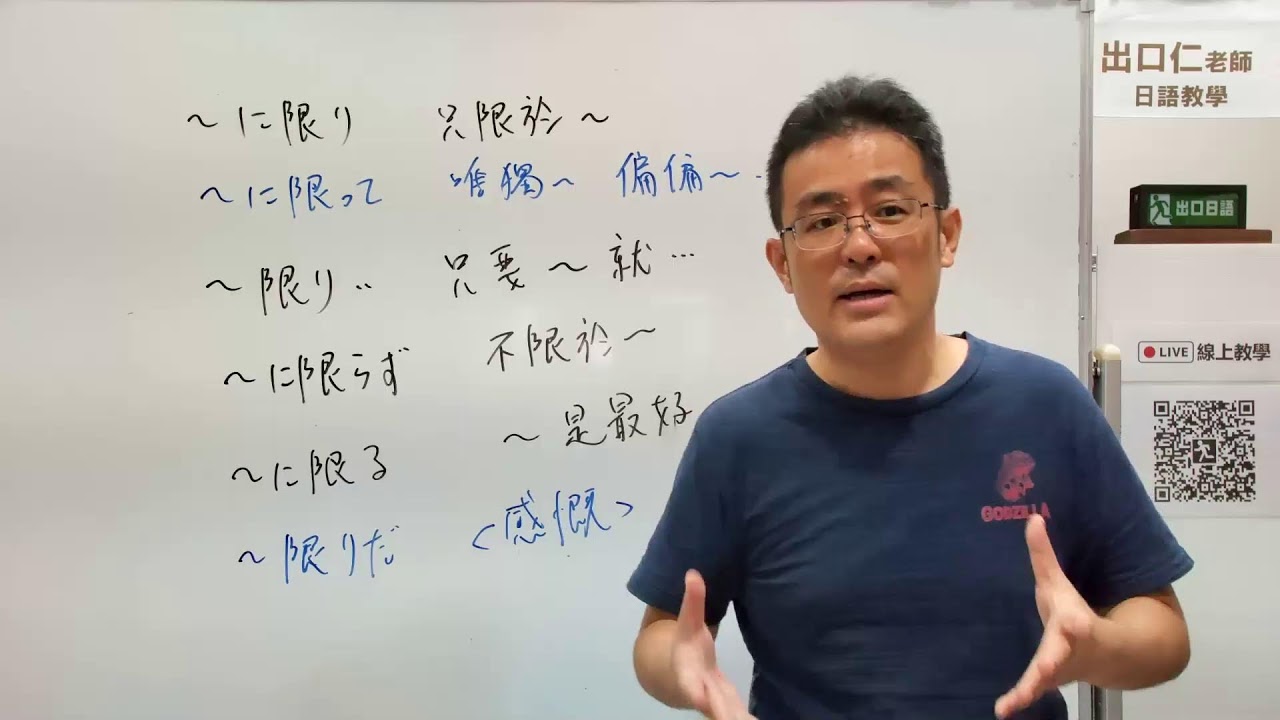 ～に限り 只限於～
～に限って 唯獨～ 偏偏～‥
～限り‥ 只要～就…
～に限らず 不限於～
～に限る ～是最好
～限りだ <感慨>
出口仁老師
日語教學
出口日語
LIVE 線上教學
GODZILLA